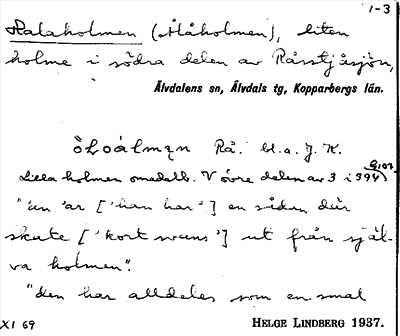 1-3
Halaholmen (Ålåholmen), liten
holme i södra delen av Råsstjåsjön,
Älvdalens sn, Älvdals tg, Kopparbergs län.
Rå. bl.a. J. K.
Lilla holmen omedelb. V övre delen av 3 i 394)
"un 'ar ['han har'] en sådan där
skate ['kort svans'] ut från själ-
va holmen".
"den har alldeles som en smal
XI 69
HELGE LINDBERG 1937.